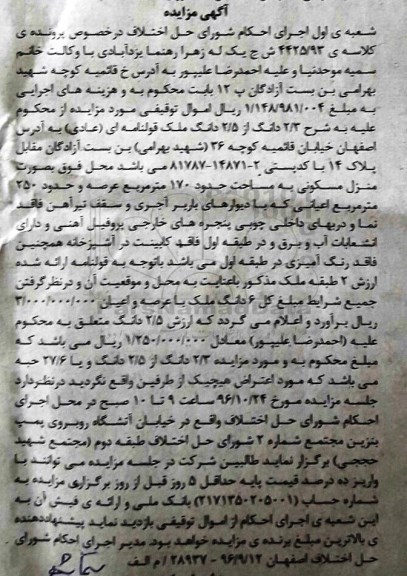 آگهی مزایده
شعبه ی اول اجرای احکام شورای حل اختلاف درخصوص پرونده ی
کلاسه ی ۴۴۲۵/۹۳ ش ج یک له زهرا رهنما یزدآبادی با وکالت خانم
سمیه موحدنیا و علیه احمدرضا علیپور به آدرس خ قائمیه کوچه شهید
بهرامی بن بست آزادگان پ ۱۲ بابت محکوم به و هزینه های اجرایی
به مبلغ ۱/۱۴۸/۹۸۱/۰۰۴ ریال اموال توقیفی مورد مزایده از محکوم
علیه به شرح ۲/۳ دانگ از ۲/۵ دانگ ملک قولنامه ای (عادی) به آدرس
اصفهان خیابان قائمیه کوچه ۳۶ (شهید بهرامی) بن بست آزادگان مقابل
پلاک ۱۴ با کدپستی ۲-۱۴۸۷۱-۸۱۷۸۷ می باشد محل فوق بصورت
منزل مسکونی به مساحت حدود ۱۷۰ مترمربع عرصه و حدود ۲۵۰
مترمربع اعیانی که با دیوارهای باربر آجری و سقف تیرآهن فاقد
نما و دربهای داخلی چوبی پنجره های خارجی پروفیل آهنی و دارای
انشعابات آب و برق و در طبقه اول فاقد کابینت در آشپزخانه همچنین
فاقد رنگ آمیزی در طبقه اول می باشد باتوجه به قولنامه ارائه شده
ارزش ۲ طبقه ملک مذکور باعنایت به محل و موقعیت آن و درنظرگرفتن
جمیع شرایط مبلغ کل ۶ دانگ ملک با عرصه و اعیان ۳/۰۰۰/۰۰۰/۰۰۰
ریال برآورد و اعلام می گردد که ارزش ۲/۵ دانگ متعلق به محکوم
علیه (احمدرضا علیپور) معادل ۱/۲۵۰/۰۰۰/۰۰۰ ریال می باشد که
مبلغ محکوم به و مورد مزایده ۲/۳ دانگ از ۲/۵ دانگ و یا ۲۷/۶ حبه
می باشد که مورد اعتراض هیچیک از طرفین واقع نگردید درنظردارد
جلسه مزایده مورخ ۹۶/۱۰/۲۴ ساعت ۹ تا ۱۰ صبح در محل اجرای
احکام شورای حل اختلاف واقع در خیابان آتشگاه روبروی پمپ
بنزین مجتمع شماره ۲ شورای حل اختلاف طبقه دوم (مجتمع شهید
حججی) برگزار نماید طالبین شرکت در جلسه مزایده می توانند با
واریز ده درصد قیمت پایه حداقل ۵ روز قبل از روز برگزاری مزایده به
شماره حساب (۲۱۷۱۳۵۰۲۰۵۰۰۱) بانک ملی و ارائه ی فیش آن به
این شعبه ی اجرای احکام از اموال توقیفی بازدید نماید پیشنهاددهنده
ی بالاترین مبلغ برنده ی مزایده خواهد بود. مدیر اجرای احکام شورای
حل اختلاف اصفهان ۹۶/۹/۱۲ - ۲۸۹۳۷ / م الف